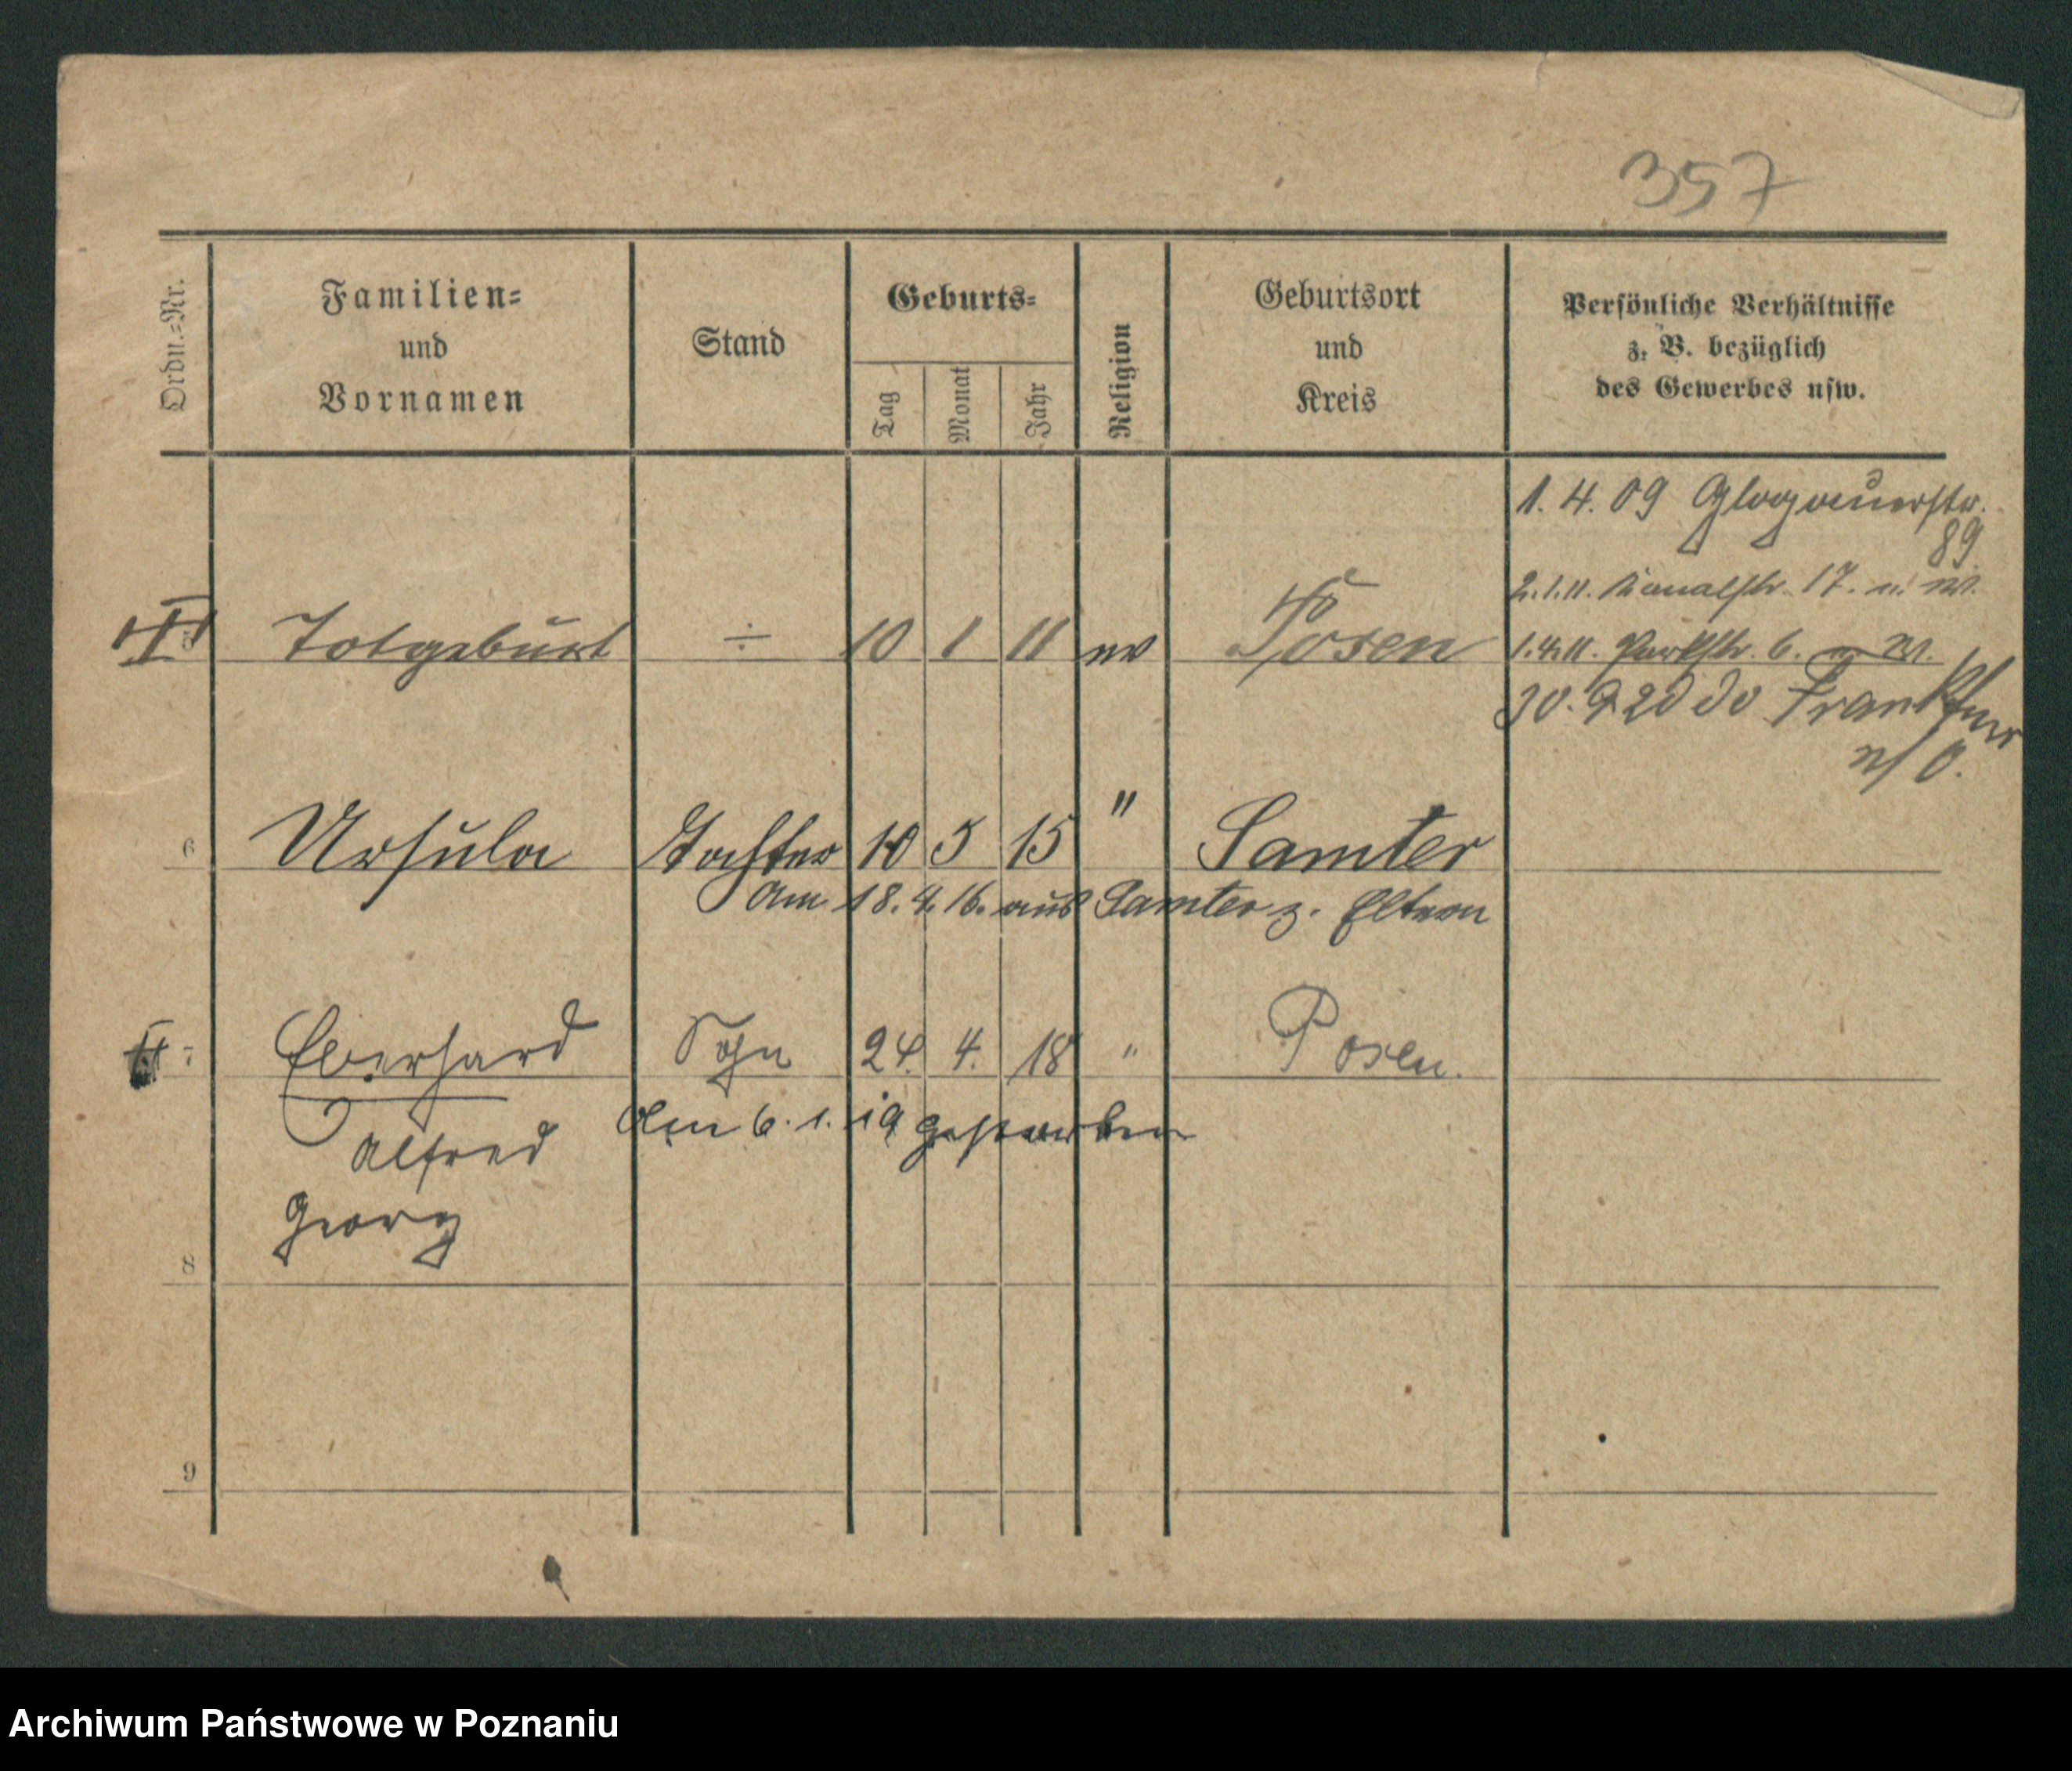 357
Ordn.-Nr.
Familien-
und
Vornamen
Stand
Geburts-
Tag
Monat
Jahr
Religion
Geburtsort
und
Kreis
Persönliche Verhältnisse
z. B. bezüglich
des Gewerbes usw.
1. 4. 09 Glogauerstr.
89
2.1.11. Kanalstr. 17.
5 Totgeburt ÷ 10 1 11 ev Posen 1.4.11. Parkstr. 6.
30. 9 20 Frankfur
a/O.
6 Ursula Tochter 10 5 15 " Samter
Am 18. 4. 16. aus Samter z. Eltern
7 Eberhard Sohn 24. 4. 18 " Posen.
Am 6. 1. 19 gestorben
Alfred
Georg
8
9
Archiwum Państwowe w Poznaniu